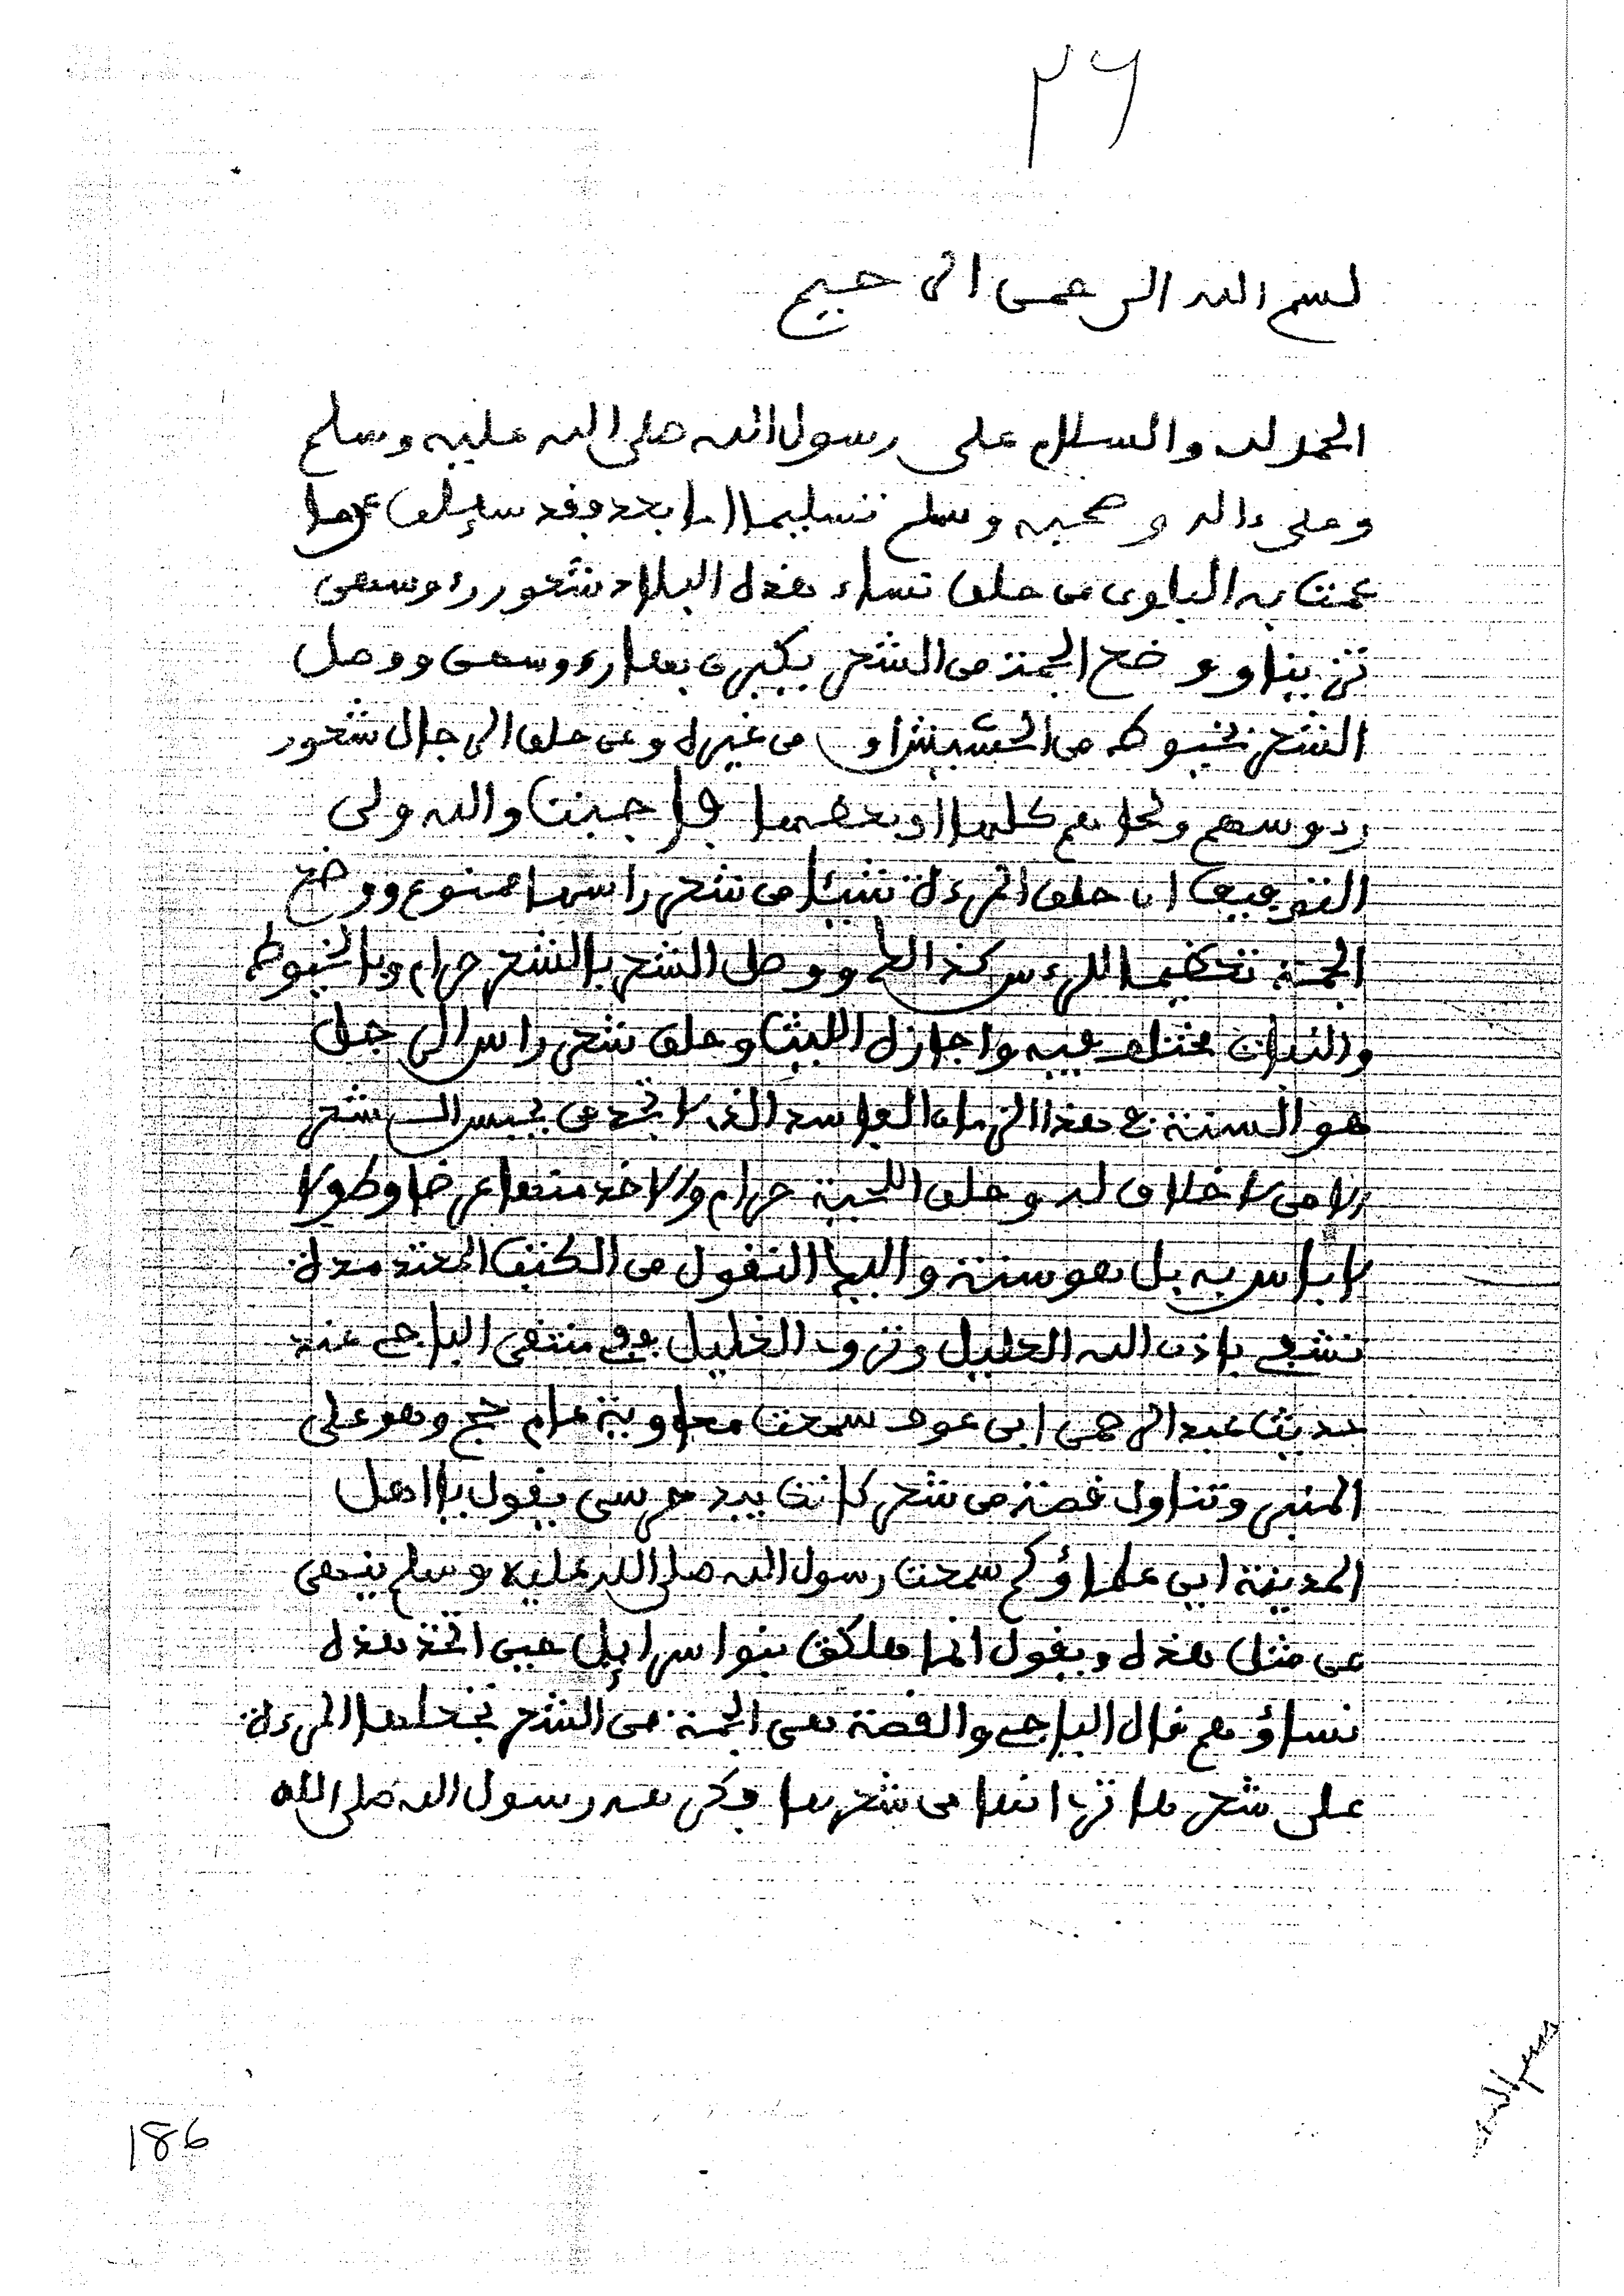 ٢٦
بسم الله الرحمن الرحيم
الحمد لله والسلام على رسول الله صلى الله عليه وسلم
وعلى ءاله وصحبه وسلم تسليما اما بعد فقد سئلت عما
عمت به البلوى من حلق نساء هذه البلاد شعور رءوسهن
تزينا ووضع الجمة من الشعر يكبرن بها رءوسهن ووصل
الشعر بخيوط من او من غيره وعن حلق الرجال شعور
رءوسهم ولحاهم كلها او بعضها فاجبت والله ولي
التوفيق ان حلق المرءة شيئا من شعر راسها ممنوع ووضع
الجمة تعظيما للرءس كذالك ووصل الشعر بالشعر حرام وبالخيوط
والنبات مختلف فيه واجازه الليث وحلق شعر راس الرجل
هو السنة في هذا الزمان الفاسد الذي لا تجد من يحبس الشعر
الا من لا خلاق له وحلق اللحية حرام والاخذ منها عرضا وطولا
لا باس به بل هو سنة والنقول من الكتب المعتمدة
تشفي باذن الله العليل وتروي الغليل ففي منتقى الباجي عند
حديث عبد الرحمن ابن عوف سمعت معاوية عام حج وهو على
المنبر وتناول قصة من شعر كانت بيد حرسي يقول يا اهل
المدينة اين علماؤكم سمعت رسول الله صلى الله عليه وسلم ينهى
عن مثل هذه ويقول انما هلكت بنوا سراءيل حين اتخذ هذه
نساؤهم قال الباجي والقصة هي الجمة من الشعر تجعلها المرءة
على شعرها تر انها من شعرها فكره رسول الله صلى الله
186